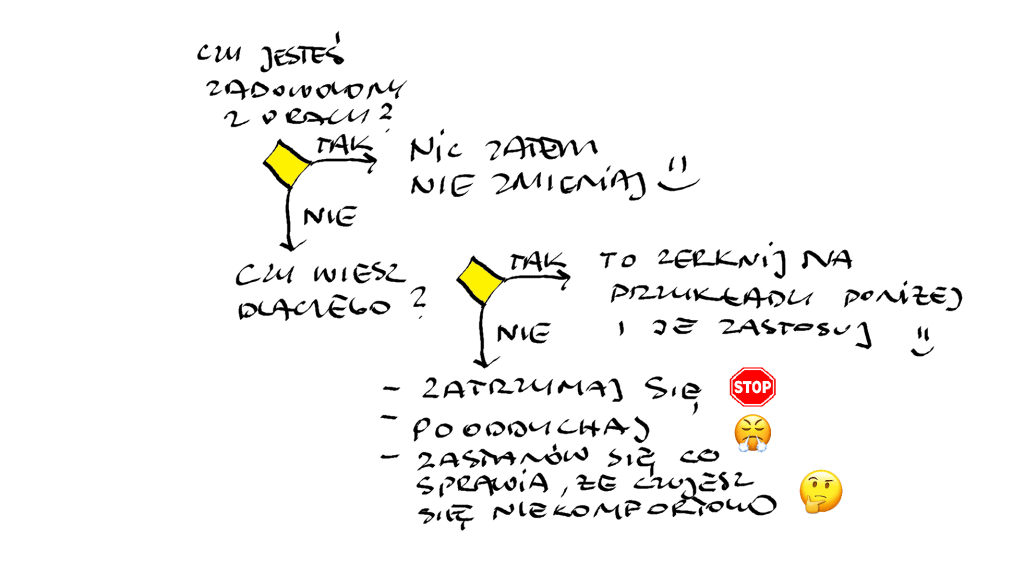 CZY JESTEŚ
ZADOWOLONY
Z PRACY?
TAK
NIC ZATEM
NIE ZMIENIAJ
NIE
CZY WIESZ
DLACZEGO?
TAK
TO ZERKNIJ NA
PRZYKŁADY PONIŻEJ
I JE ZASTOSUJ
NIE
- ZATRZYMAJ SIĘ
STOP
- POODDYCHAJ
- ZASTANÓW SIĘ CO
SPRAWIA, ŻE CZUJESZ
SIĘ NIEKOMFORTOWO